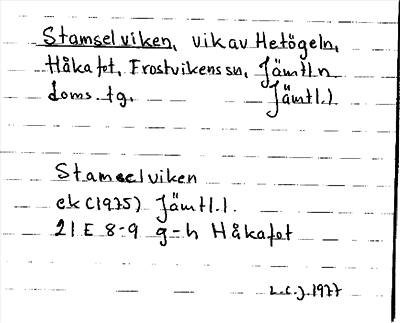 Stamselviken, vik av Hetögeln,
Håkafot, Frostvikens sn, Jämtl. n
doms. tg. Jämtl. l
Stamselviken
ek (1975) Jämtl. l.
21 E 8-9 g-h Håkafot
L.C.J. 1977